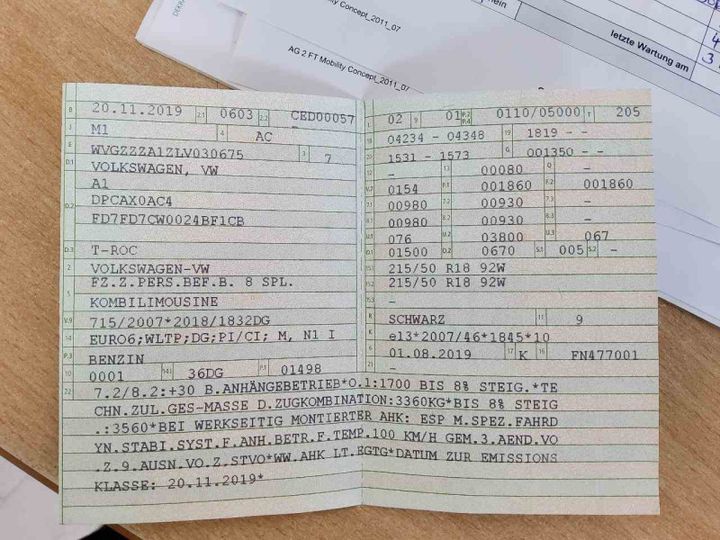 DEKRA
Mobility Concept_2011_07
AG 2 FT Mobility Concept_2011_07
letzte Wartung am
B 20.11.2019 2.1 0603 2.2 CED00057
J M1 4 AC
E WVGZZZA1ZLV030675 3 7
D.1 VOLKSWAGEN, VW
A1
D.2 DPCAX0AC4
FD7FD7CW0024BF1CB
D.3 T-ROC
2 VOLKSWAGEN-VW
5 FZ.Z.PERS.BEF.B. 8 SPL.
KOMBILIMOUSINE
V.9 715/2007*2018/1832DG
14 EURO6;WLTP;DG;PI/CI; M, N1 I
P.3 BENZIN
10 0001 14.1 36DG P.1 01498
L 02 9 01 P.2 P.4 0110/05000 T 205
18 04234 - 04348 19 1819 - -
20 1531 - 1573 G 001350 - -
12 - 13 00080 Q -
V.7 0154 F.1 001860 F.2 001860
7.1 00980 7.2 00930 7.3 -
8.1 00980 8.2 00930 8.3 -
U.1 076 U.2 03800 U.3 067
O.1 01500 O.2 0670 S.1 005 S.2 -
15.1 215/50 R18 92W
15.2 215/50 R18 92W
15.3 -
R SCHWARZ 11 9
K e13*2007/46*1845*10
6 01.08.2019 17 K 16 FN477001
21 -
22 7.2/8.2:+30 B.ANHÄNGEBETRIEB*O.1:1700 BIS 8% STEIG.*TE
CHN.ZUL.GES-MASSE D.ZUGKOMBINATION:3360KG*BIS 8% STEIG
.:3560*BEI WERKSEITIG MONTIERTER AHK: ESP M.SPEZ.FAHRD
YN.STABI.SYST.F.ANH.BETR.F.TEMP.100 KM/H GEM.3.AEND.VO
.Z.9.AUSN.VO.Z.STVO*WW.AHK LT.EGTG*DATUM ZUR EMISSIONS
KLASSE: 20.11.2019*